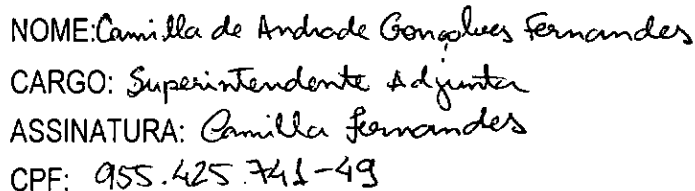 NOME: Camilla de Andrade Gonçalves Fernandes
CARGO: Superintendente Adjunta
ASSINATURA: Camilla Fernandes
CPF: 955.425.741-49